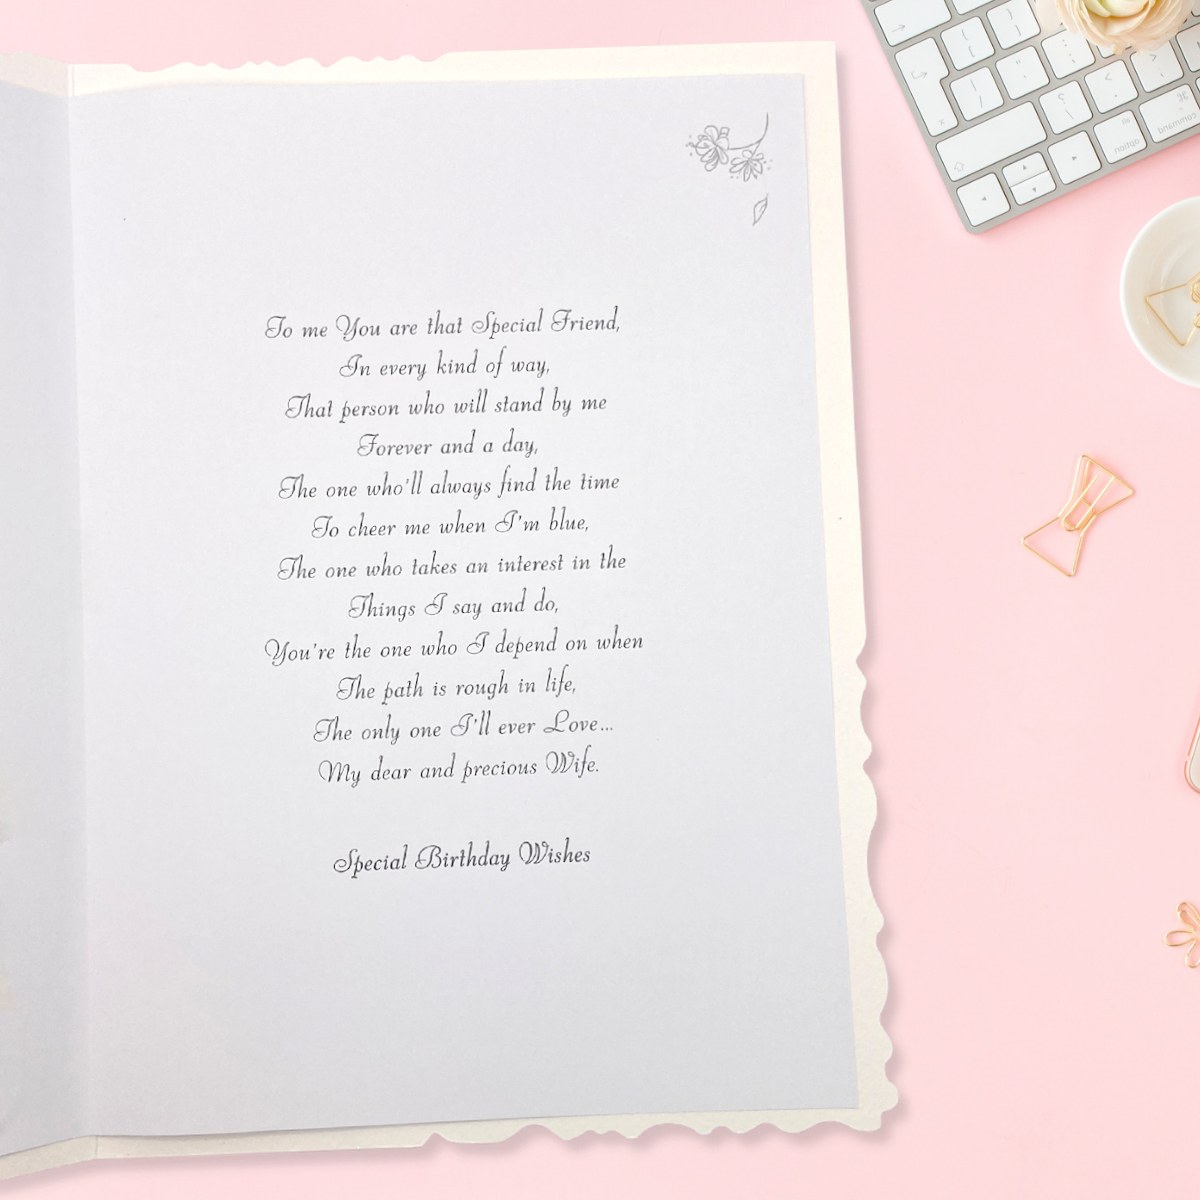 To me You are that Special Friend,
In every kind of way,
That person who will stand by me
Forever and a day,
The one who'll always find the time
To cheer me when I'm blue,
The one who takes an interest in the
Things I say and do,
You're the one who I depend on when
The path is rough in life,
The only one I'll ever Love...
My dear and precious Wife.
Special Birthday Wishes
command
option